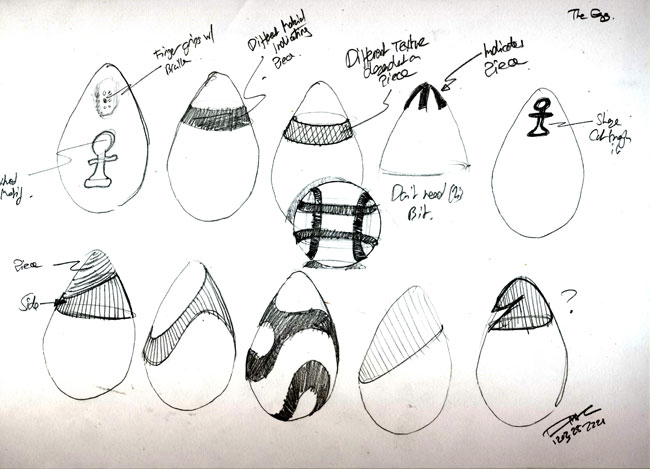 The Egg.
Finger grips w/
Braille
Different Material
Indicating
Piece
Different Texture
depended on
Piece
Indicates
Piece
Shape
Cut through
it
Motif
Don't need
Bit.
Piece
Side
?